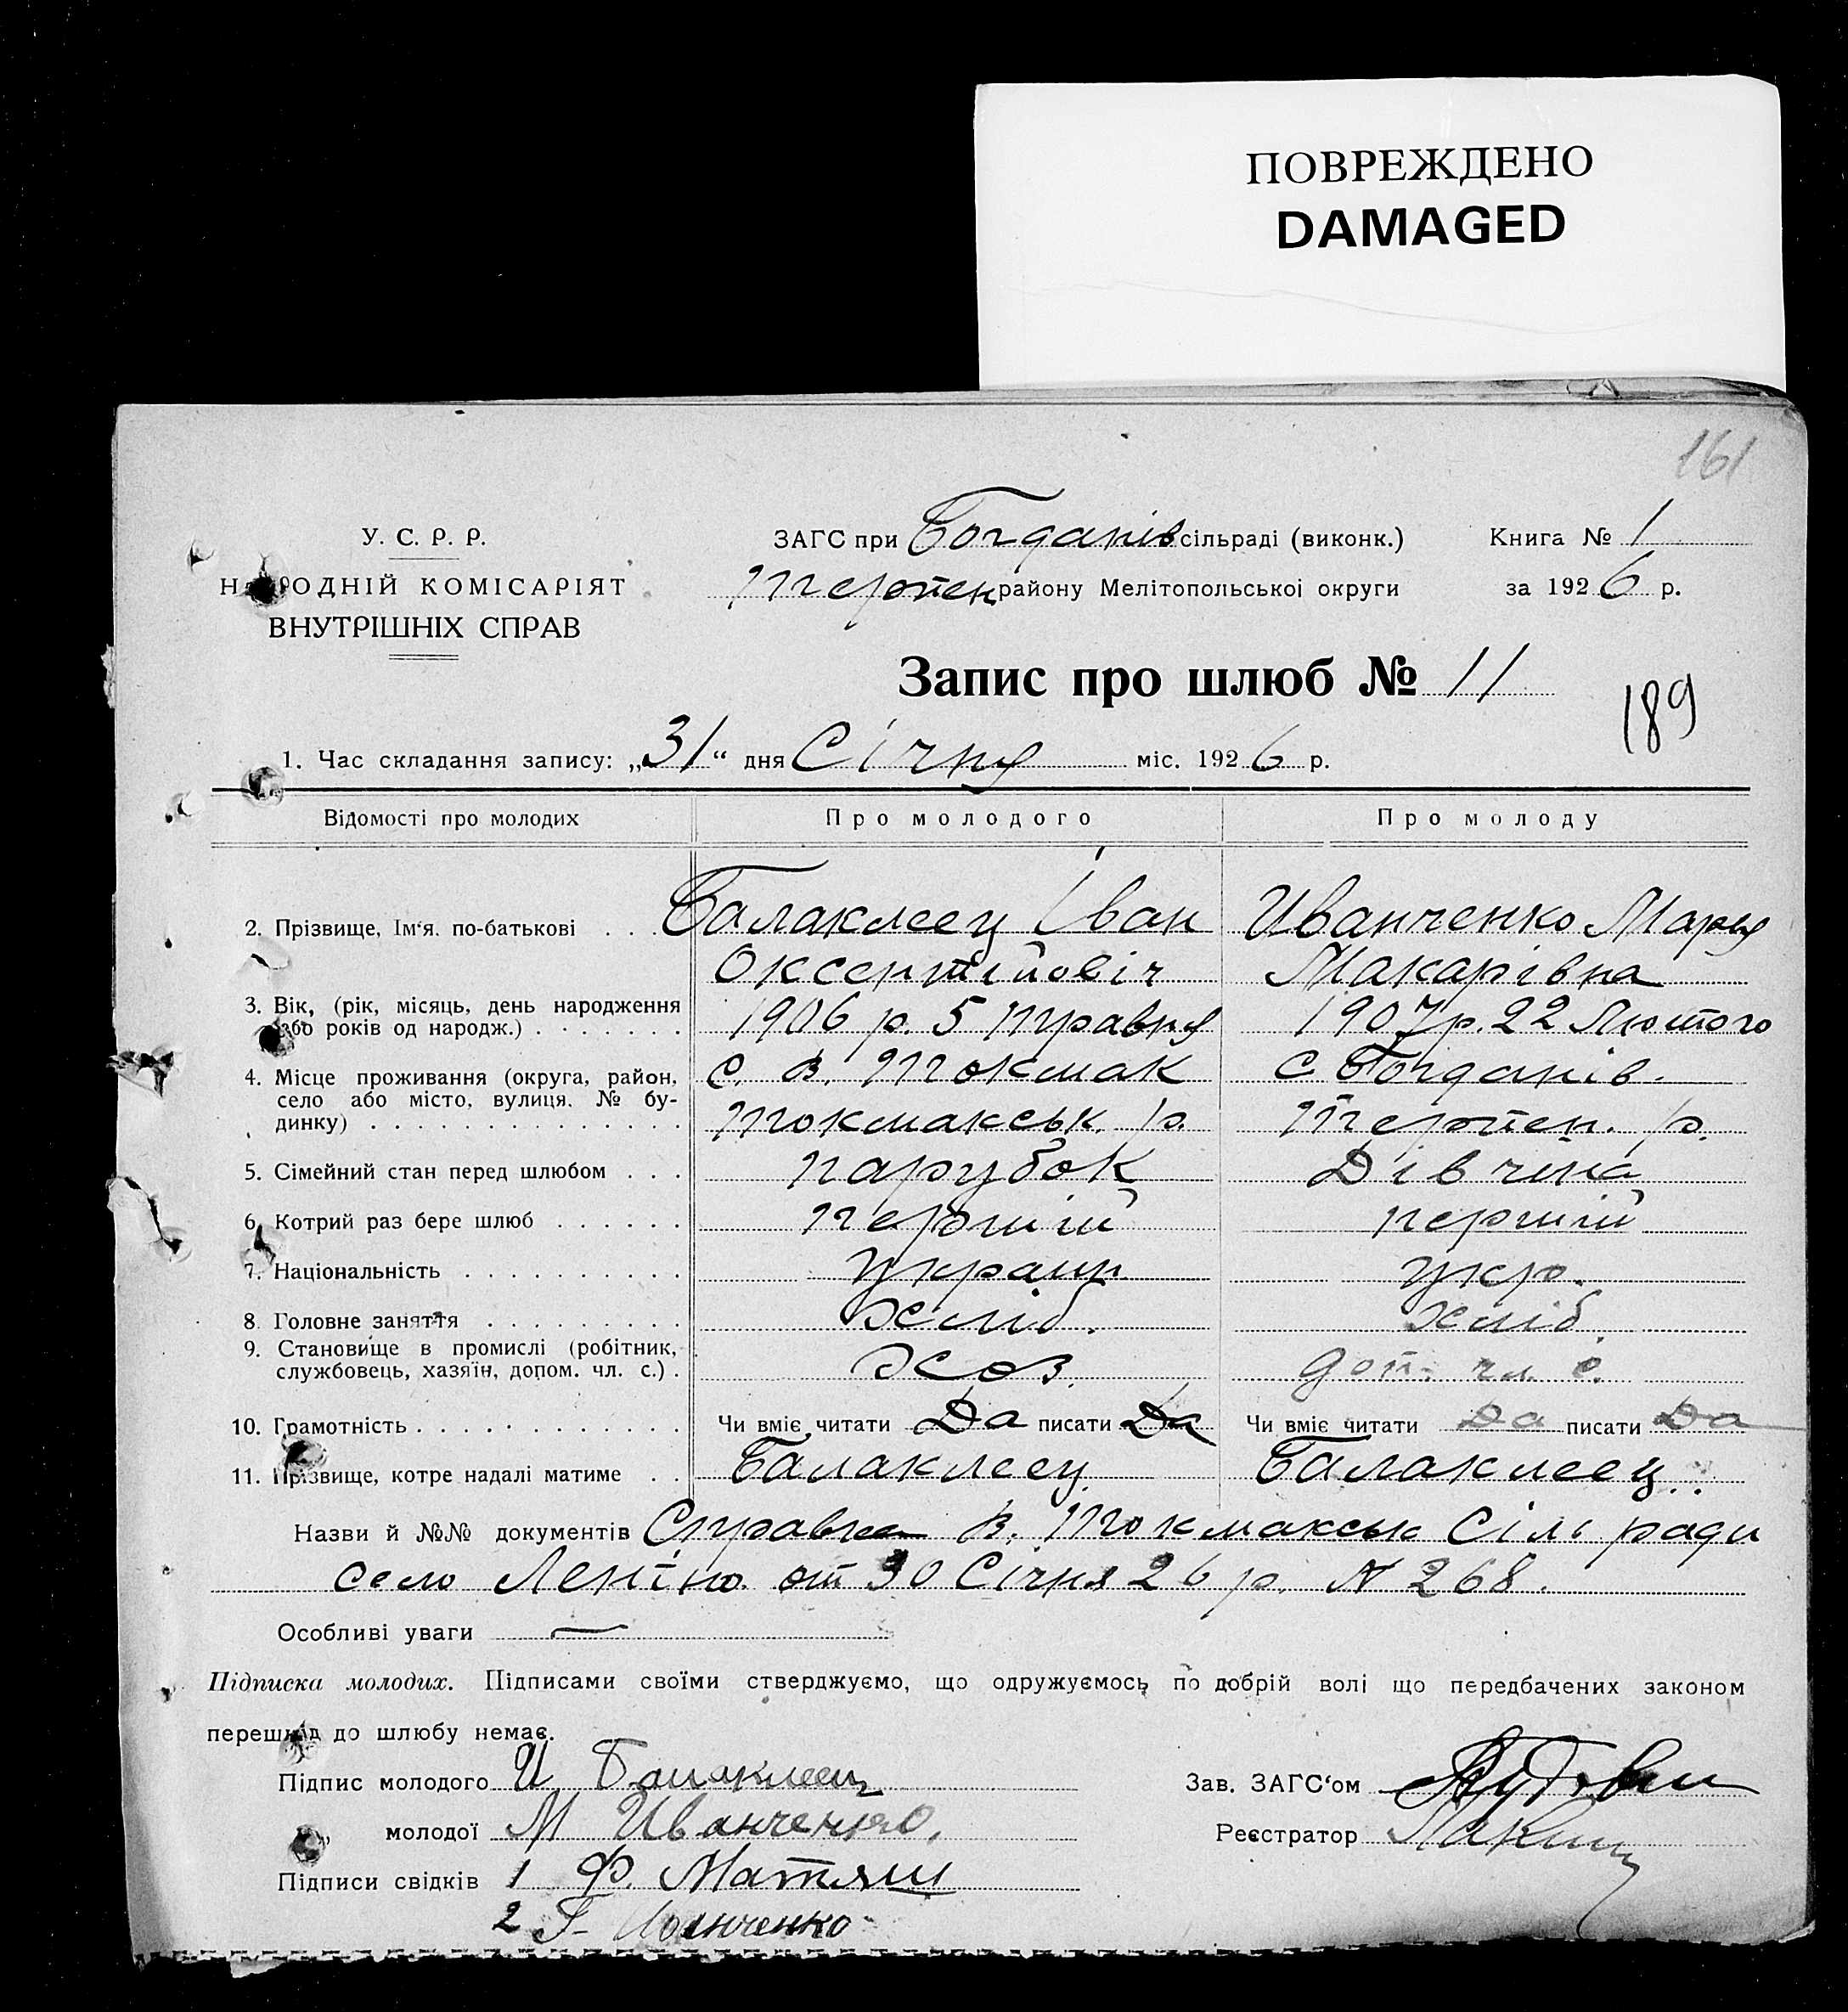 ПОВРЕЖДЕНО
DAMAGED
161
У. С. Р. Р.
НАРОДНІЙ КОМІСАРІЯТ
ВНУТРІШНІХ СПРАВ
ЗАГС при Богданів сільраді (виконк.)
Терпен району Мелітопольської округи
Книга № 1
за 1926 р.
Запис про шлюб № 11
189
1. Час складання запису: „31“ дня Січня міс. 1926 р.
Відомості про молодих Про молодого Про молоду
2. Прізвище, Ім‘я. по-батькові . . . Балаклеец Іван Иванченко Марія
Оксентійовіч Макарівна
3. Вік, (рік, місяць, день народження 1906 р. 5 травня 1907 р. 22 Лютого
або років од народж.) . . . . . . .
4. Місце проживання (округа, район, с. В. Токмак с Богданів.
село або місто, вулиця, № бу-
динку) . . . . . . . . . . . . . . Токмакськ. р. Терпен. р.
5. Сімейний стан перед шлюбом . . . парубок Дівчина
6. Котрий раз бере шлюб . . . . . . першій першій
7. Національність . . . . . . . . . . Украин укр.
8. Головне заняття . . . . . . . . . Хліб. хліб.
9. Становище в промислі (робітник, Хоз. доп. чл. с.
службовець, хазяїн, допом. чл. с.) .
10. Грамотність . . . . . . . . . . . . Чи вміє читати Да писати Да Чи вміє читати Да писати Да
11. Прізвище, котре надалі матиме . . Балаклеец Балаклеец.
Назви й №№ документів Справка В. Токмакськ Сіль ради
село Леніно от 30 Січня 26 р. N 268.
Особливі уваги —
Підписка молодих. Підписами своїми стверджуємо, що одружуємось по добрій волі що передбачених законом
перешкод до шлюбу немає.
Підпис молодого И Балаклеец
Зав. ЗАГС‘ом
„ молодої М Иванченко,
Реєстратор
Підписи свідків 1 Ф. Матяш
2 Г- Иванченко